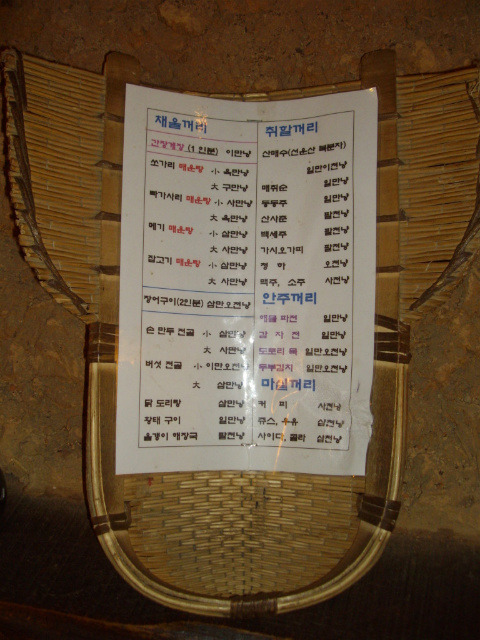 채울꺼리
간장게장 (1 인분) 이만냥
쏘가리 매운탕 小 육만냥
大 구만냥
빠가사리 매운탕 小 사만냥
大 육만냥
메기 매운탕 小 삼만냥
大 사만냥
잡고기 매운탕 小 삼만냥
大 사만냥
장어구이(2인분) 삼만오천냥
손 만두 전골 小 삼만냥
大 사만냥
버섯 전골 小 이만오천냥
大 삼만냥
닭 도리탕 삼만냥
황태 구이 일만냥
올갱이 해장국 팔천냥
취할꺼리
산매수(선운산 복분자)
일만이천냥
매취순 일만냥
동동주 일만냥
산사춘 팔천냥
백세주 팔천냥
가시오가피 팔천냥
청 하 오천냥
맥주, 소주 사천냥
안주꺼리
해물 파전 일만냥
감 자 전 일만냥
도토리 묵 일만오천냥
두부김치 일만오천냥
마실꺼리
커 피 사천냥
쥬스, 우유 삼천냥
사이다, 콜라 삼천냥